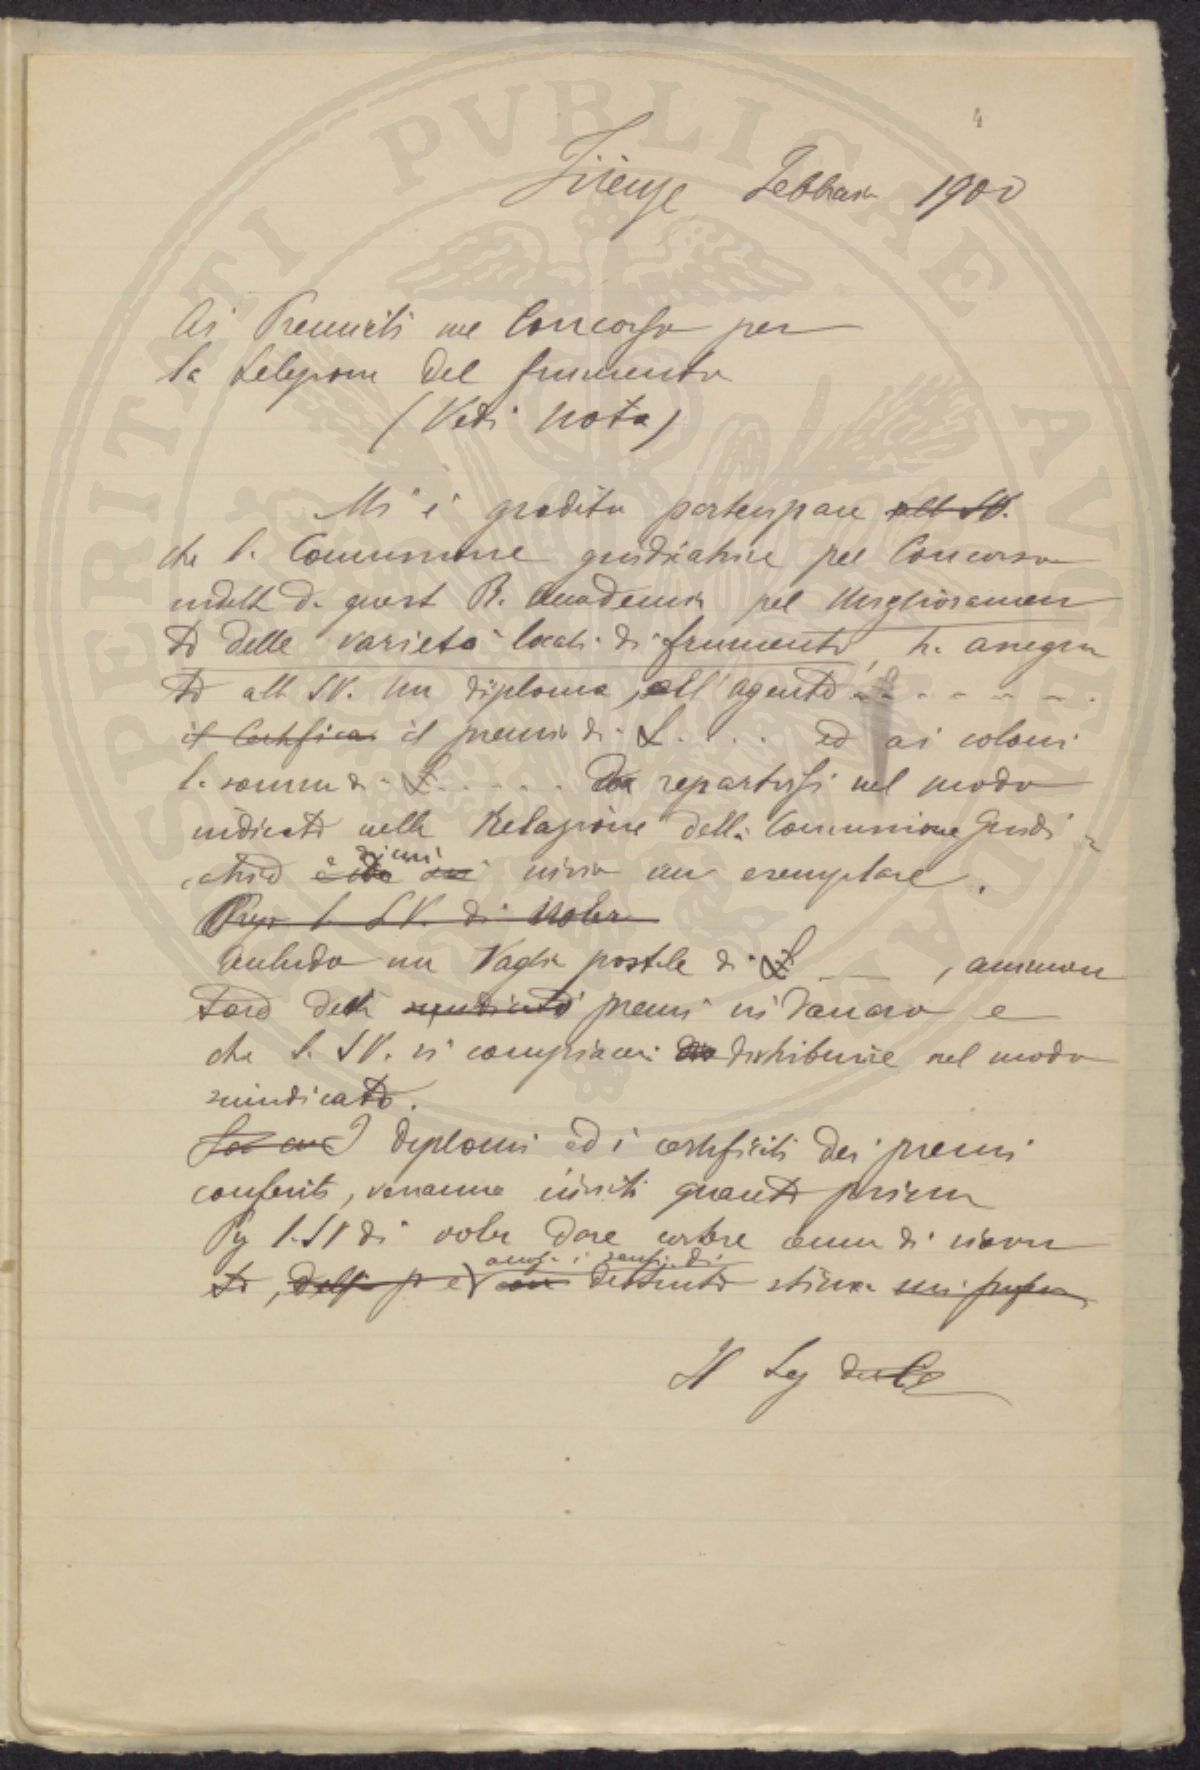 PROSPERITATI PVBLICAE AVGENDAE
4
Firenze Febbraio 1900
Ai Premiati nel Concorso per
la selezione del frumento
(Vedi nota)
Mi è gradito partecipare alla SV.
che la Commissione giudicatrice pel Concorso
indetto da questa R. Accademia pel Miglioramen
to delle varietà locali di frumento, ha assegna
to alla SV. un diploma, all'agente . . . . . . .
il Certificato il premio di L. . . . ed ai coloni
la somma di L. . . . . . da repartirsi nel modo
indicato nella Relazione della Commissione Giudi
catrice di cui invio un esemplare.
Prego la SV. di voler
Accludo un Vaglia postale di L —— , ammon
tare dei suindicati premi in danaro e
che la SV. si compiacerà distribuire nel modo
suindicato.
I diplomi ed i certificati dei premi
conferiti, verranno inviati quanto prima
Pg la SV di voler dare cortese cenno di ricevu
ta, con sensi di distinta stima
Il Seg